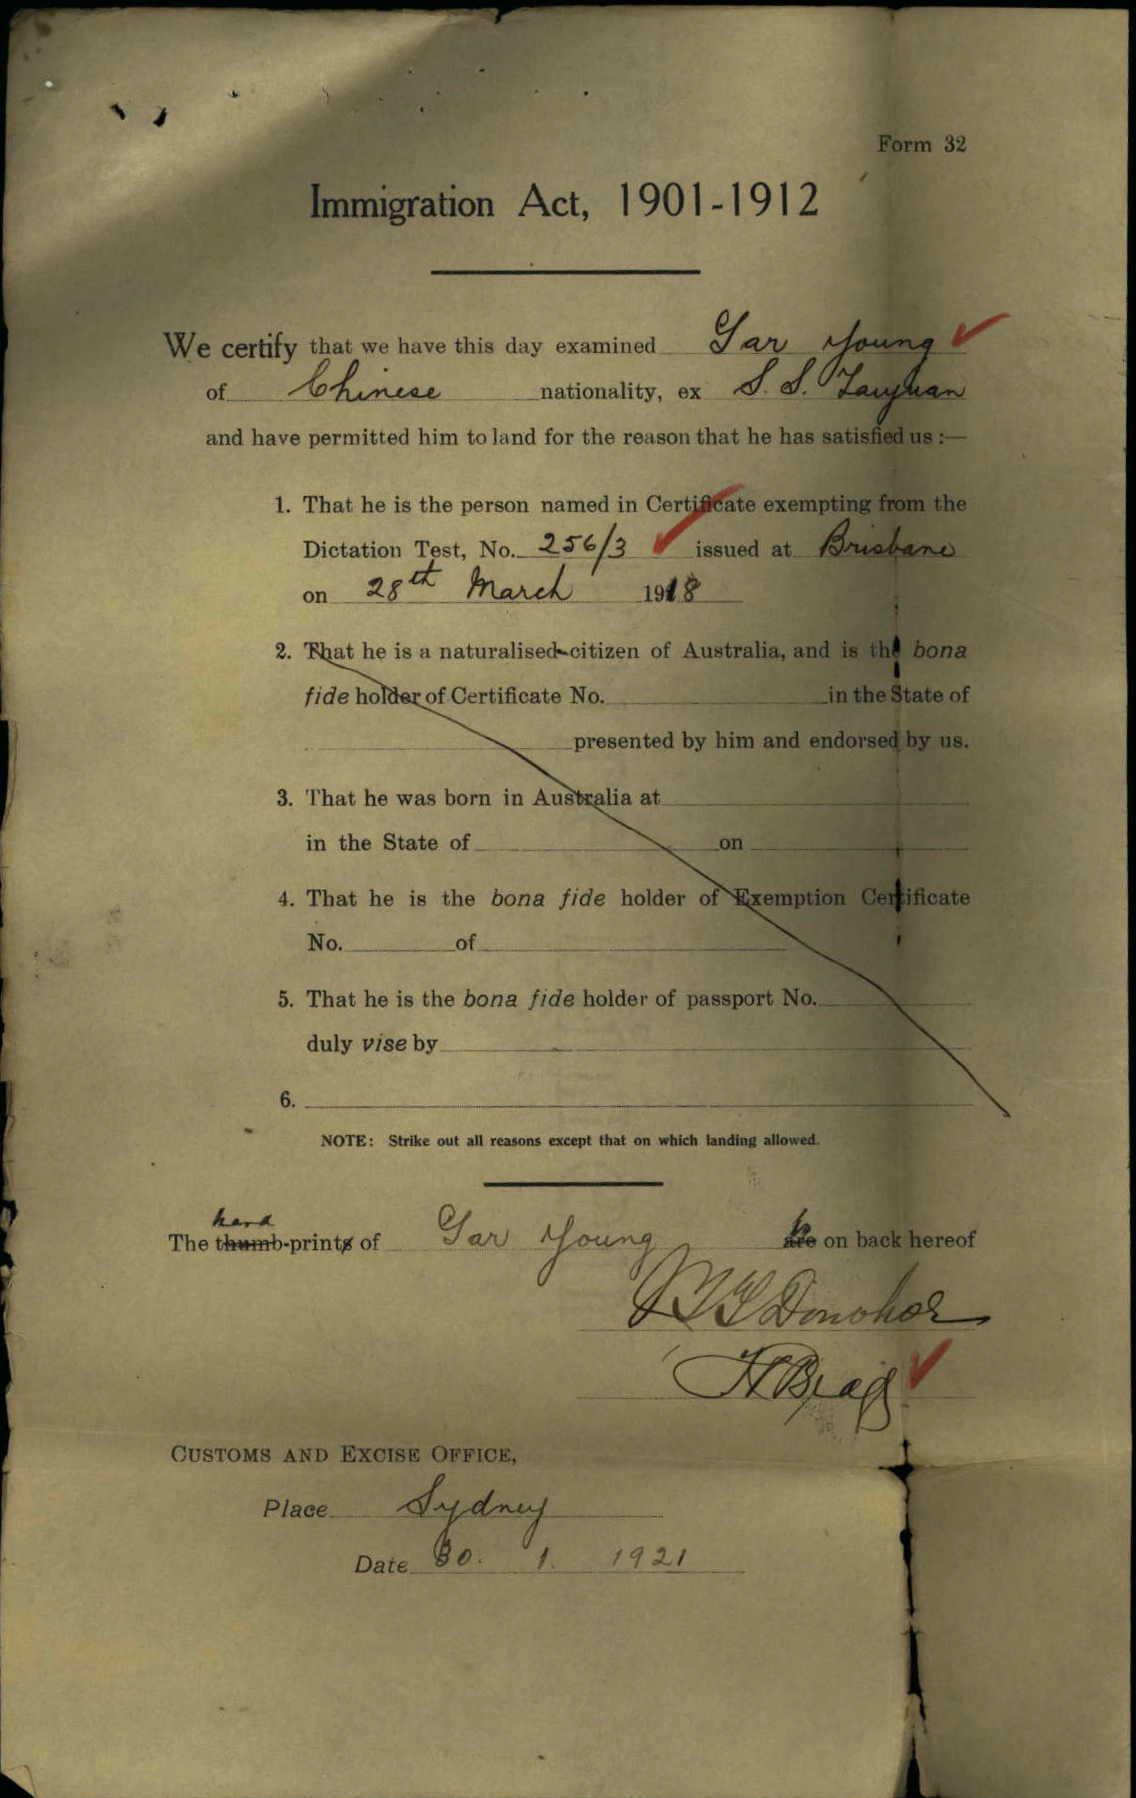 Form 32
Immigration Act, 1901-1912
We certify that we have this day examined Gar Young
of Chinese nationality, ex S. S. Taiyuan
and have permitted him to land for the reason that he has satisfied us :—
1. That he is the person named in Certificate exempting from the
Dictation Test, No. 256/3 issued at Brisbane
on 28th March 1918
2. That he is a naturalised citizen of Australia, and is the bona
fide holder of Certificate No. in the State of
presented by him and endorsed by us.
3. That he was born in Australia at
in the State of on
4. That he is the bona fide holder of Exemption Certificate
No. of
5. That he is the bona fide holder of passport No.
duly vise by
6.
NOTE: Strike out all reasons except that on which landing allowed.
hand
The thumb-prints of Gar Young are on back hereof
Donohoe
CUSTOMS AND EXCISE OFFICE,
Place Sydney
Date 30. 1. 1921